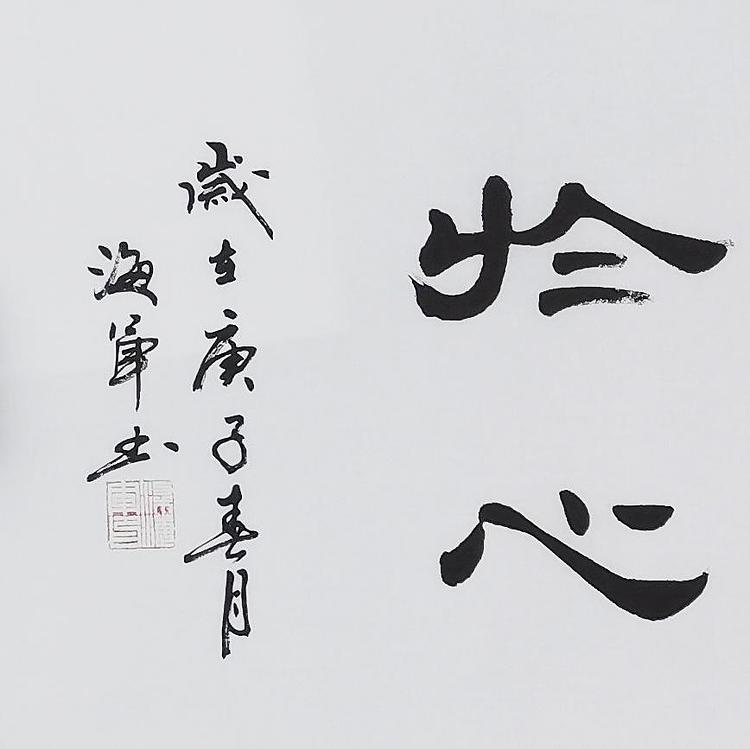 於心
歲在庚子春月
海軍书